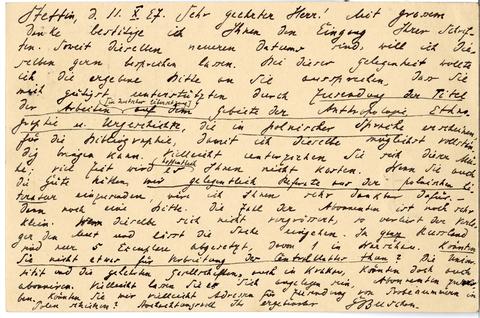 Stettin, d. 11. X 97. Sehr geehrter Herr! Mit grossem
Danke bestätige ich Ihnen den Eingang Ihrer Schrif-
ten. Soweit dieselben neueren Datums sind, will ich die-
selben gern besprechen lassen. Bei dieser Gelegenheit wollte
ich die ergebene Bitte an Sie aussprechen, dass Sie
mich gütigst unterstützten durch Zusendung der Titel
(in deutscher Übersetzung)
der Arbeiten auf dem Gebiete der Anthropologie, Ethno-
graphie u. Urgeschichte, die in polnischer Sprache erscheinen,
für die Bibliographie, damit ich dieselbe möglichst vollstän-
dig bringen kann. Vielleicht unterziehen Sie sich dieser Mü-
he; viel Zeit wird es hoffentlich Ihnen nicht kosten. Wenn Sie auch
die Güte hätten, mir gelegentlich Referate aus der polnischen Li-
teratur einzusenden, wäre ich Ihnen sehr dankbar dafür. -
Dann noch eine Bitte. Die Zahl der Abonnenten ist noch sehr
klein. Wenn dieselbe sich nicht vergrössert, so verliert der Verle-
ger den Mut und lässt die Sache eingehen. In ganz Russland
sind nur 5 Exemplare abgesetzt, davon 1 in Warschau. Könnten
Sie nicht etwas für Verbreitung des Centralblattes thun? Die Univer-
sität und die gelehrten Gesellschaften, auch in Krakau, könnten doch auch
abonnieren. Vielleicht lassen Sie es sich angelegen sein, Abonnenten zu wer-
ben. Könnten Sie mir vielleicht Adressen für Zusendung von Probenummern in
Polen schicken? Hochachtungsvoll Ihr ergebenster GBuschan.